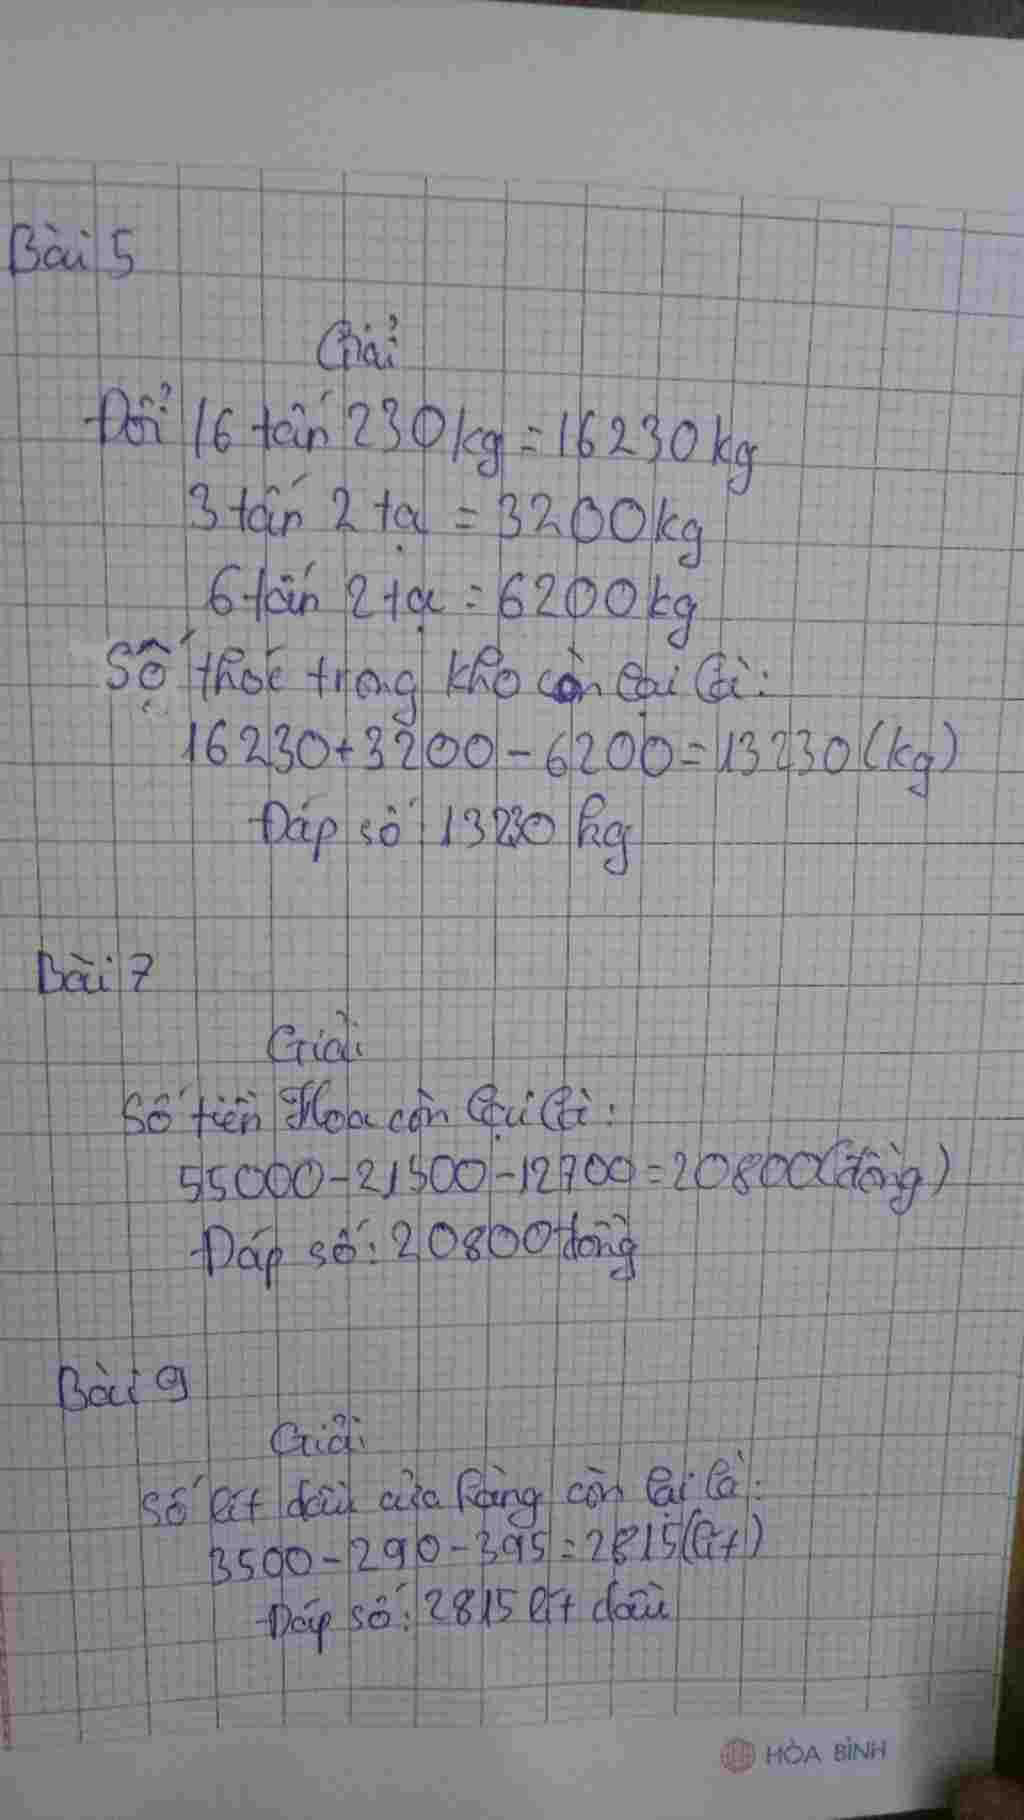 Bài 5
Giải
Đổi 16 tấn 230kg = 16230kg
3 tấn 2 tạ = 3200kg
6 tấn 2 tạ = 6200kg
Số thóc trong kho còn lại là:
16230 + 3200 - 6200 = 13230 (kg)
Đáp số: 13230 kg
Bài 7
Giải
Số tiền Hoa còn lại là:
55000 - 21500 - 12700 = 20800 (đồng)
Đáp số: 20800 đồng
Bài 9
Giải
Số lít dầu cửa hàng còn lại là:
3500 - 290 - 395 = 2815 (lít)
Đáp số: 2815 lít dầu
HÒA BÌNH